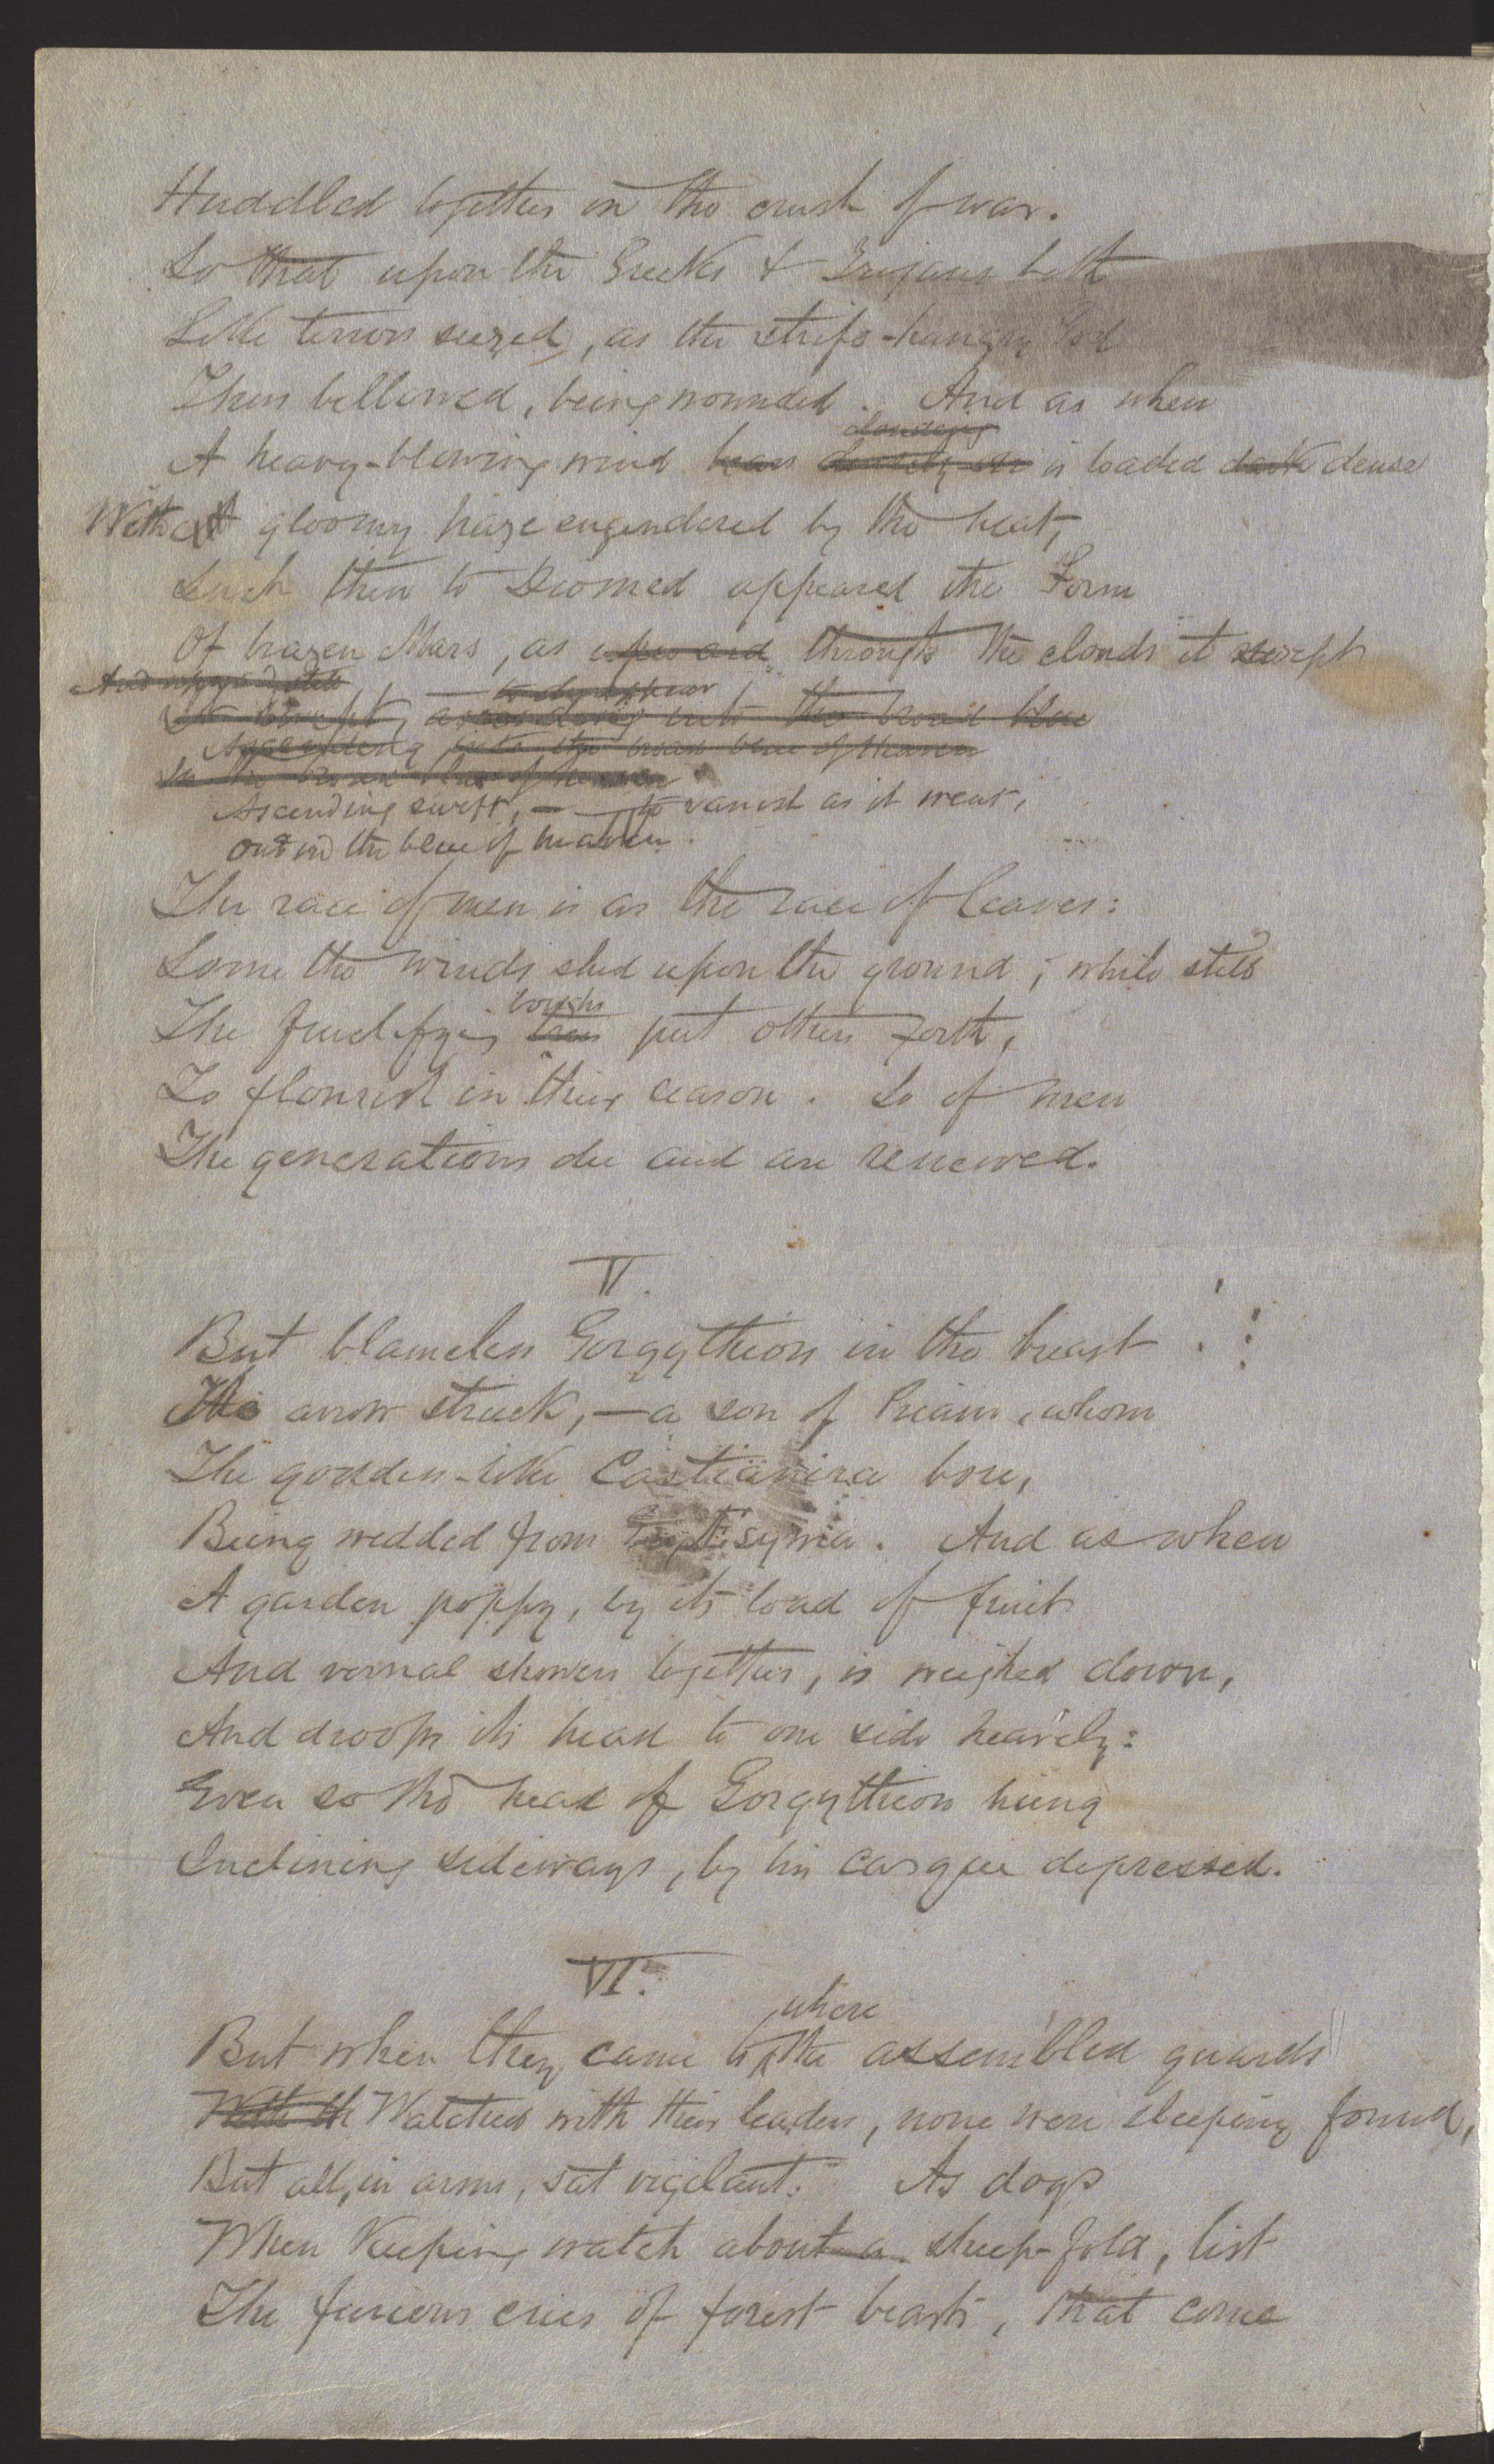 Huddled together in the crush of war.
So that upon the Greeks & Trojans both
Like terror seized, as the strife-hungry God
Thus bellowed, being wounded. And as when
A heavy-blowing wind is loaded dark dense
With a gloomy haze engendered by the heat,
Such then to Diomed appeared the Form
Of brazen Mars, as upward through the clouds it swept
to disappear
It swept, ascending into the broad blue
Ascending into the broad blue of Heaven
In the broad blue of heaven
Ascending swift, — to vanish as it were,
Out in the blue of heaven.
The race of men is as the race of leaves:
Some the winds shed upon the ground; while still
boughs
The fructifying trees put others forth,
To flourish in their season. So of men
The generations die and are renewed.
V.
But blameless Gorgythion in the breast
The arrow struck,—a son of Priam, whom
The goddess-like Castianira bore,
Being wedded from symia. And as when
A garden poppy, by its load of fruit
And vernal showers together, is weighed down,
And droops its head to one side heavily:
Even so the head of Gorgythion hung
Inclining sideways, by his casque depressed.
VI.
where
But when they came to the assembled guards
With th Watched with their leaders, none were sleeping found,
But all, in arms, sat vigilant. As dogs
When keeping watch about a sheep-fold, list
The furious cries of forest beasts, that come